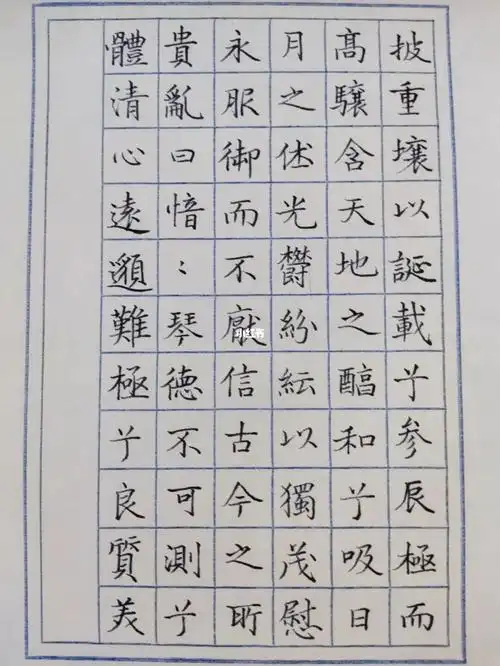 披重壤以誕載兮参辰極而
髙驤含天地之醕和兮吸日
月之休光欝紛紜以獨茂慰
永服御而不厭信古今之所
貴亂曰愔〻琴德不可測兮
體清心遠邈難極兮良質美
小红书